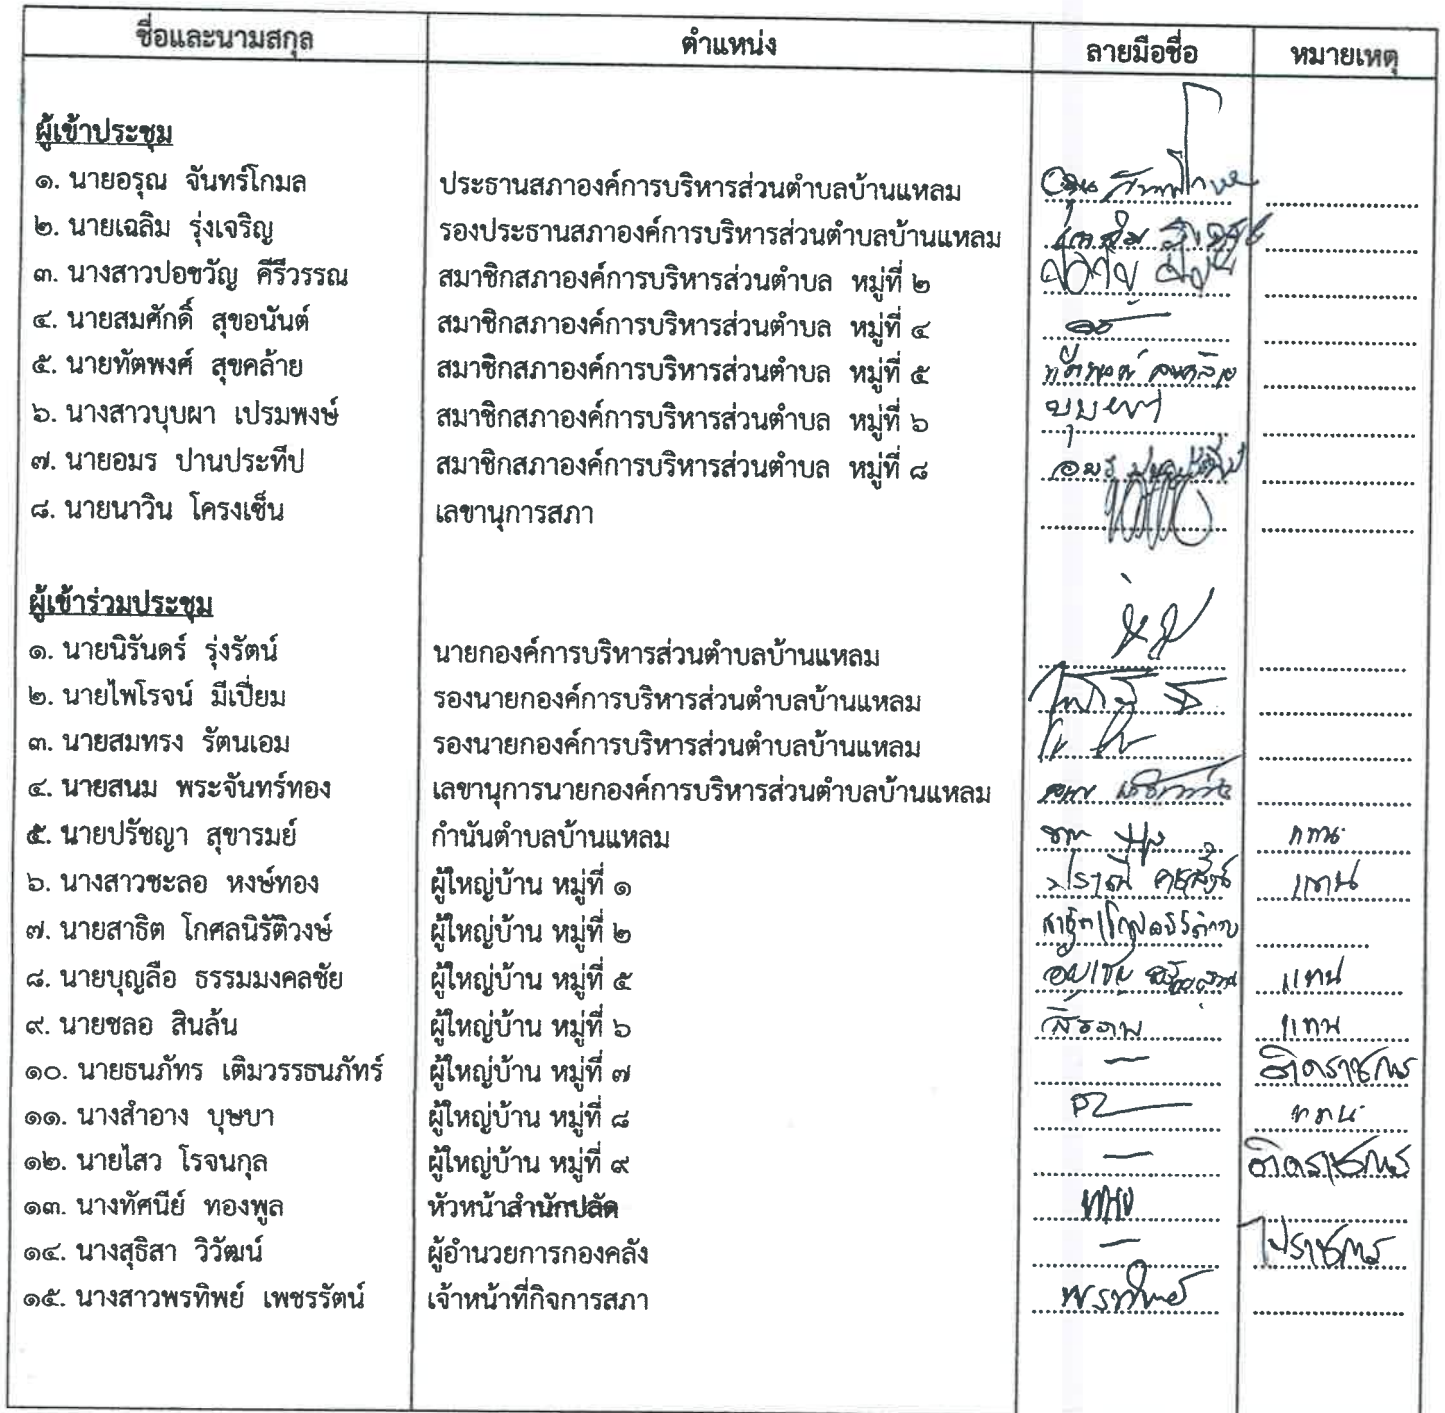 ชื่อและนามสกุล ตำแหน่ง ลายมือชื่อ หมายเหตุ
ผู้เข้าประชุม
๑. นายอรุณ จันทร์โกมล ประธานสภาองค์การบริหารส่วนตำบลบ้านแหลม
๒. นายเฉลิม รุ่งเจริญ รองประธานสภาองค์การบริหารส่วนตำบลบ้านแหลม
๓. นางสาวปอขวัญ คีรีวรรณ สมาชิกสภาองค์การบริหารส่วนตำบล หมู่ที่ ๒
๔. นายสมศักดิ์ สุขอนันต์ สมาชิกสภาองค์การบริหารส่วนตำบล หมู่ที่ ๔
๕. นายทัตพงศ์ สุขคล้าย สมาชิกสภาองค์การบริหารส่วนตำบล หมู่ที่ ๕
๖. นางสาวบุบผา เปรมพงษ์ สมาชิกสภาองค์การบริหารส่วนตำบล หมู่ที่ ๖ บุบผา
๗. นายอมร ปานประทีป สมาชิกสภาองค์การบริหารส่วนตำบล หมู่ที่ ๘ อมร ปานประทีป
๘. นายนาวิน โครงเซ็น เลขานุการสภา
ผู้เข้าร่วมประชุม
๑. นายนิรันดร์ รุ่งรัตน์ นายกองค์การบริหารส่วนตำบลบ้านแหลม
๒. นายไพโรจน์ มีเปี่ยม รองนายกองค์การบริหารส่วนตำบลบ้านแหลม
๓. นายสมทรง รัตนเอม รองนายกองค์การบริหารส่วนตำบลบ้านแหลม
๔. นายสนม พระจันทร์ทอง เลขานุการนายกองค์การบริหารส่วนตำบลบ้านแหลม
๕. นายปรัชญา สุขารมย์ กำนันตำบลบ้านแหลม แทน
๖. นางสาวชะลอ หงษ์ทอง ผู้ใหญ่บ้าน หมู่ที่ ๑ แทน
๗. นายสาธิต โกศลนิรัติวงษ์ ผู้ใหญ่บ้าน หมู่ที่ ๒
๘. นายบุญลือ ธรรมมงคลชัย ผู้ใหญ่บ้าน หมู่ที่ ๕ แทน
๙. นายชลอ สินล้น ผู้ใหญ่บ้าน หมู่ที่ ๖ แทน
๑๐. นายธนภัทร เติมวรรธนภัทร์ ผู้ใหญ่บ้าน หมู่ที่ ๗ – ติดราชการ
๑๑. นางสำอาง บุษบา ผู้ใหญ่บ้าน หมู่ที่ ๘ แทน
๑๒. นายไสว โรจนกุล ผู้ใหญ่บ้าน หมู่ที่ ๙ – ติดราชการ
๑๓. นางทัศนีย์ ทองพูล หัวหน้าสำนักปลัด
๑๔. นางสุธิสา วิวัฒน์ ผู้อำนวยการกองคลัง – ไปราชการ
๑๕. นางสาวพรทิพย์ เพชรรัตน์ เจ้าหน้าที่กิจการสภา พรทิพย์